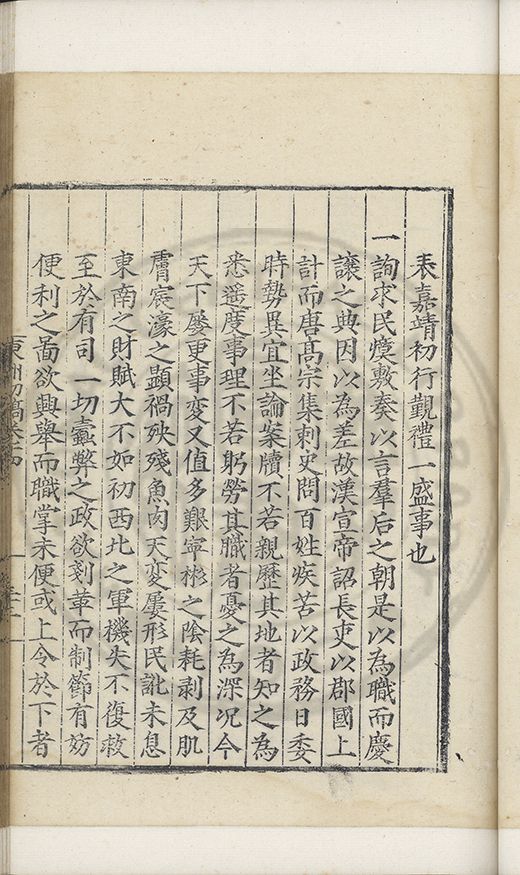 表嘉靖初行覲禮一盛事也
一詢求民瘼敷奏以言羣后之朝是以為職而慶
讓之典因以為差故漢宣帝詔長吏以郡國上
計而唐高宗集刺史問百姓疾苦以政務日委
時勢異宜坐論案牘不若親歷其地者知之為
悉遥度事理不若躬勞其職者憂之為深况今
天下屡更事変又值多艱寧彬之陰耗剥及肌
膚宸濠之顯禍殃殘魚肉天变屡形民訛未息
東南之財賦大不如初西北之軍機失不復救
至於有司一切蠹弊之政欲刻革而制節有妨
便利之啚欲興舉而職掌未便或上令於下者
東洲初稿卷之四